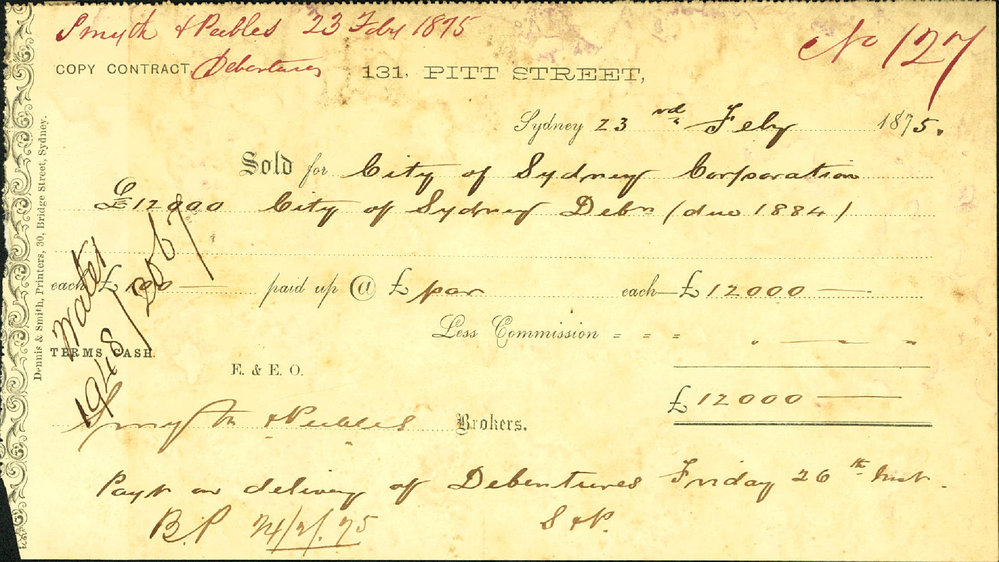 Smyth & Peebles 23 Feby 1875
No 127
COPY CONTRACT Debentures 131, PITT STREET,
Sydney 23rd Feby 1875.
Sold for City of Sydney Corporation
£12000 City of Sydney Debs (due 1884)
each £100 — paid up @ £ par each — £12000 —
Less Commission = = = „ — —
TERMS CASH.
E. & E. O.
£12000 —
Smyth & Peebles Brokers.
Payt on delivery of Debentures Friday 26th Inst.
B.P 24/2/75 S & P.
Water
1948/2067
Dennis & Smith, Printers, 30, Bridge Street, Sydney.